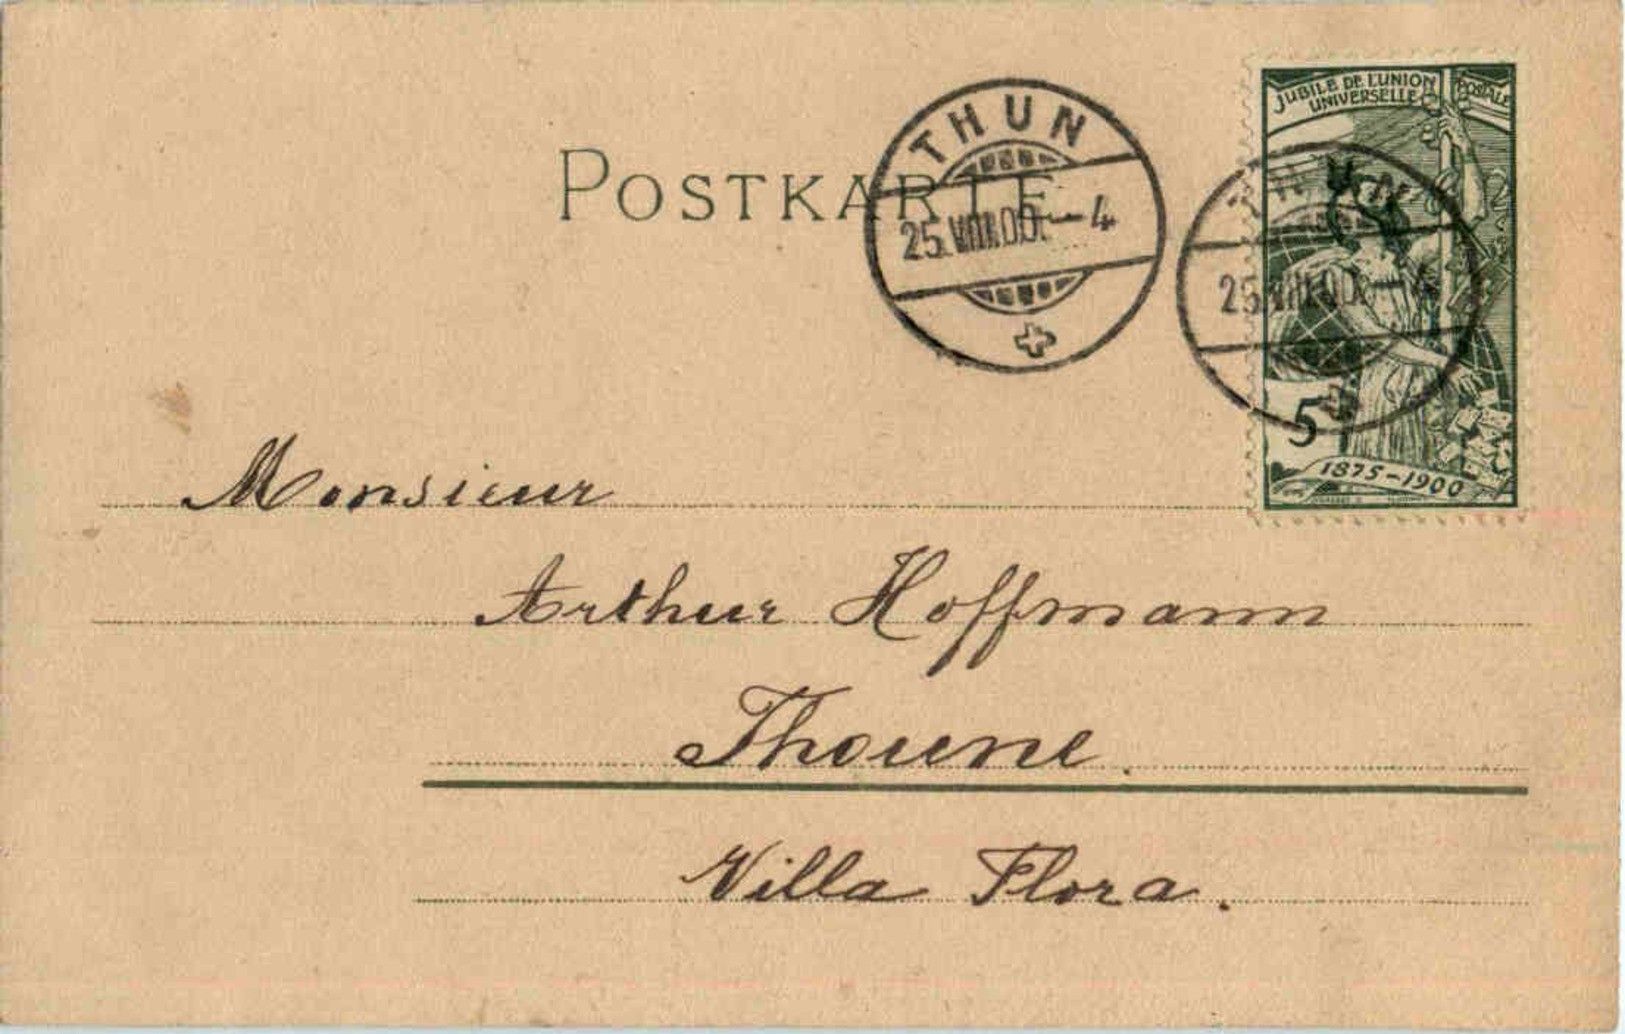 POSTKARTE
THUN
25.VIII.00.–4
JUBILÉ DE L'UNION POSTALE
UNIVERSELLE
THUN
25.VIII.00.–4
5
1875–1900
Monsieur
Arthur Hoffmann
Thoune.
Villa Flora.